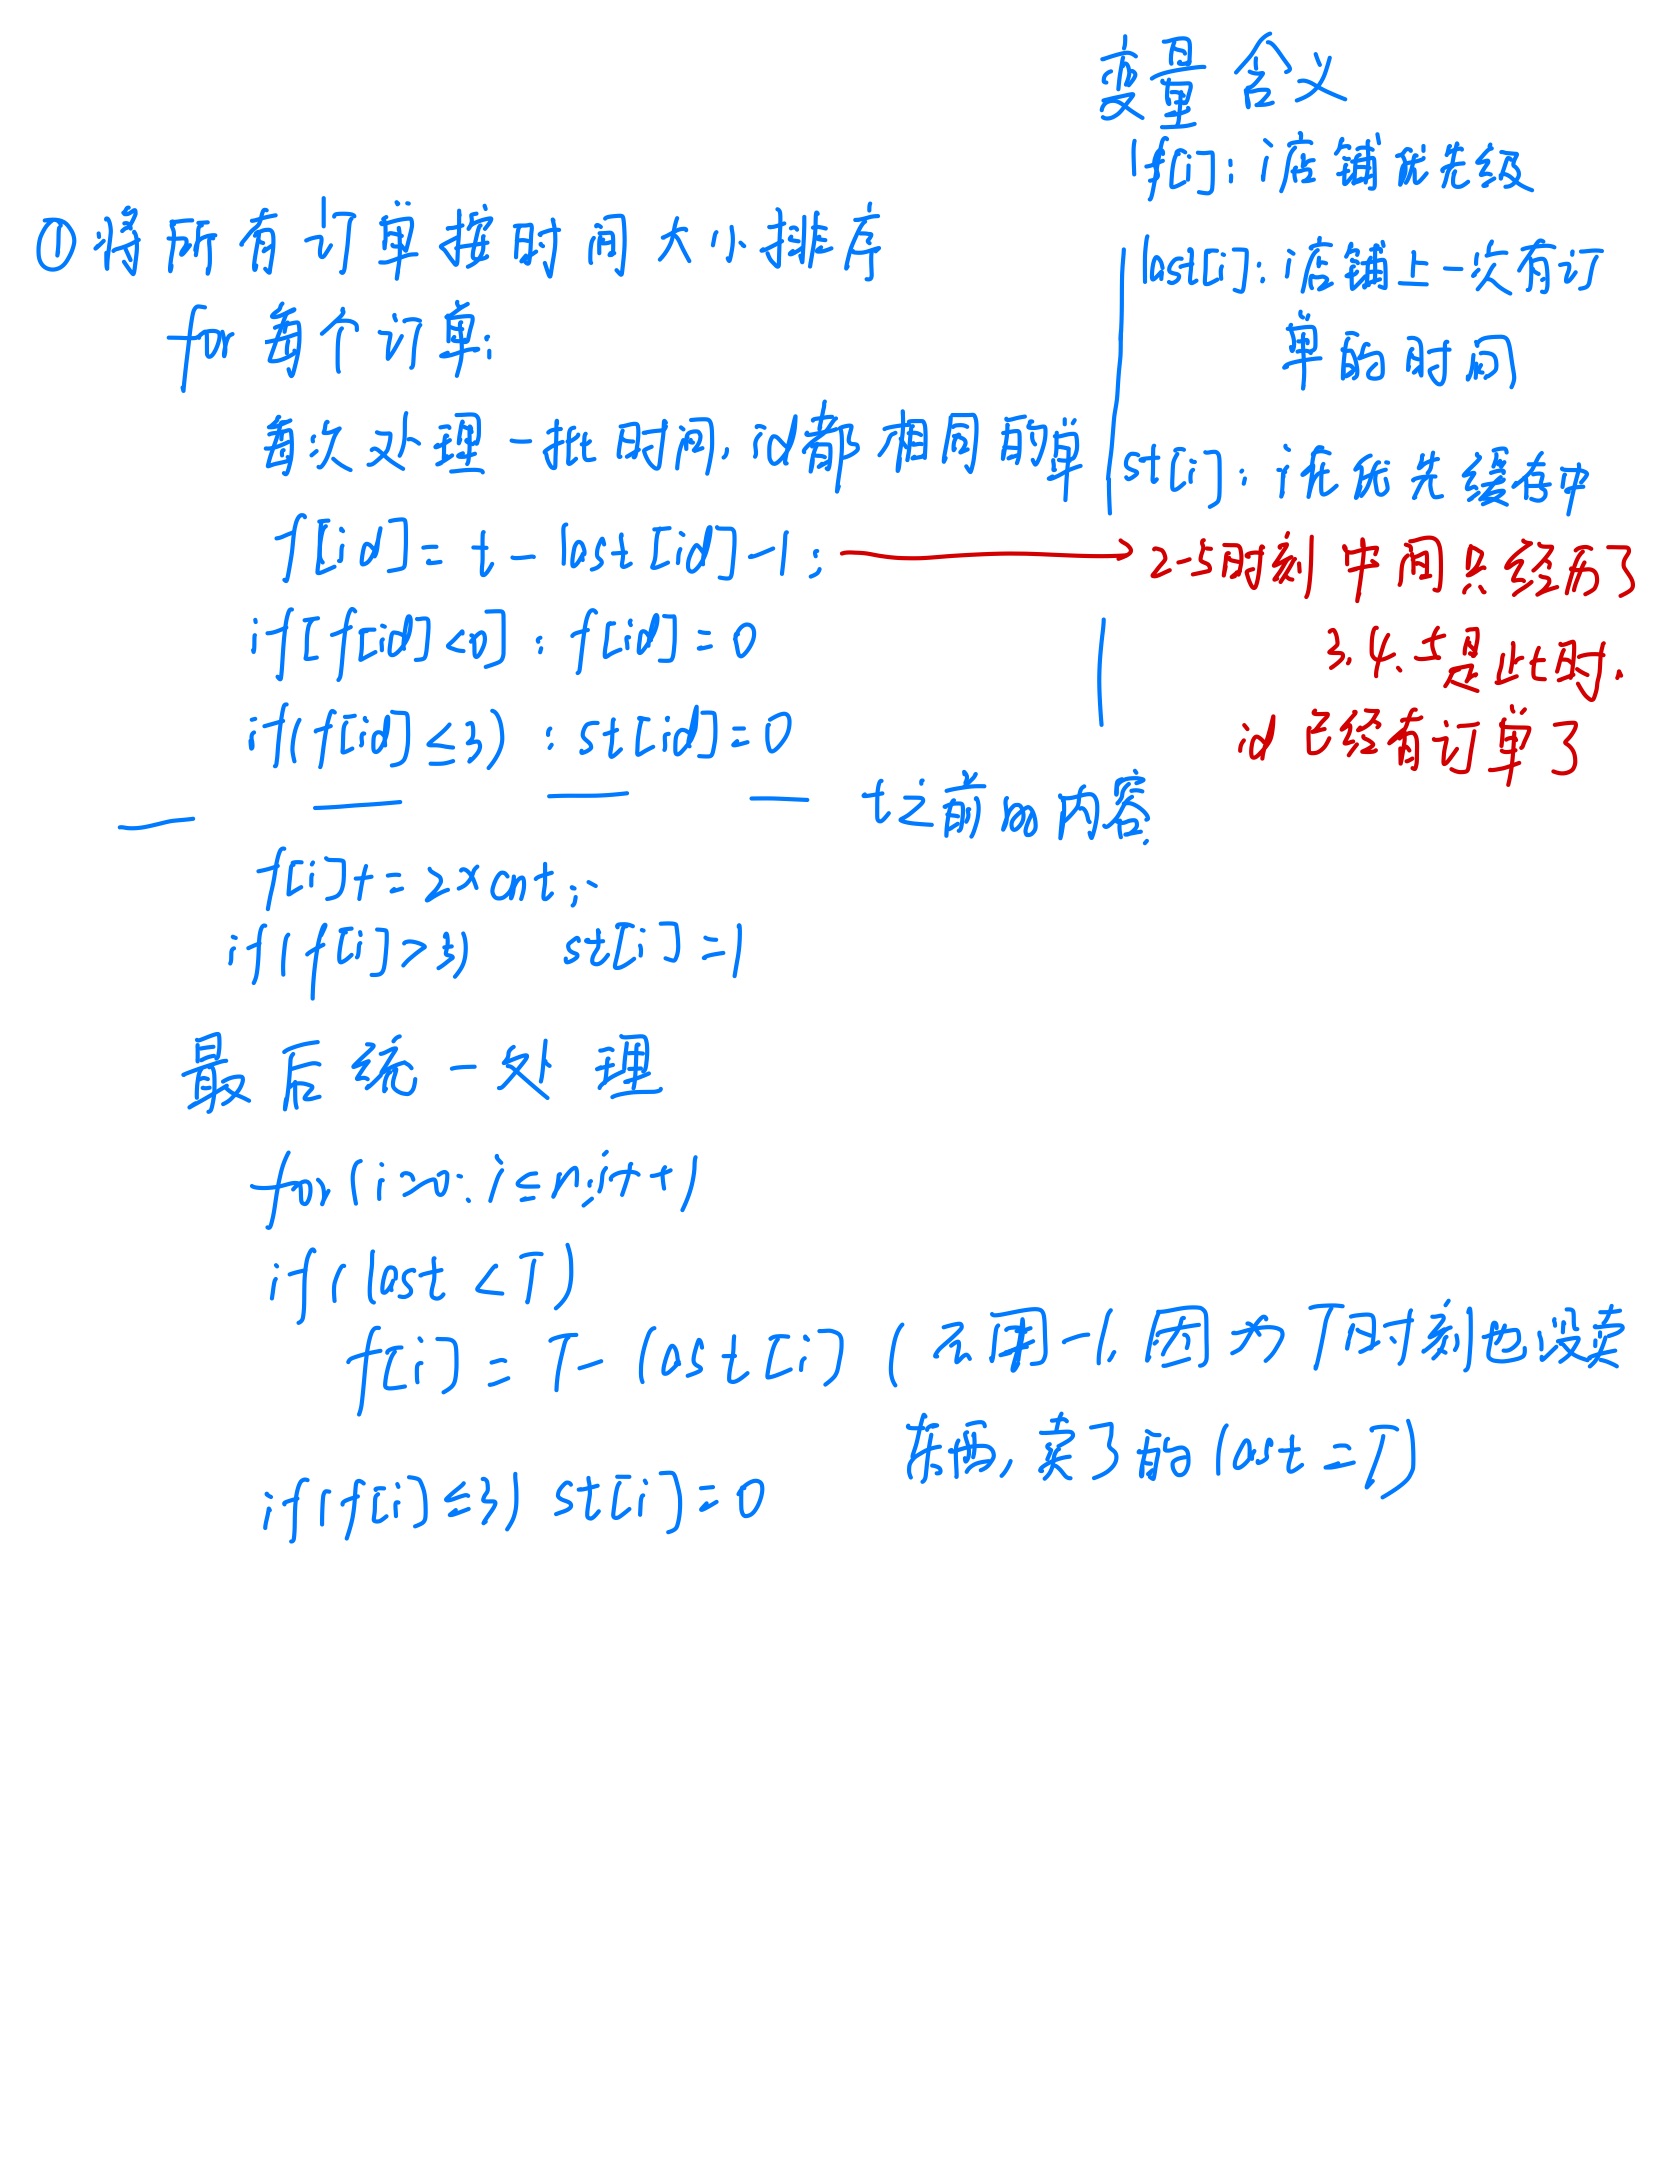 变量含义
f[i]: i店铺优先级
last[i]: i店铺上一次有订
单的时间
st[i]: i在优先缓存中
①将所有订单按时间大小排序
for 每个订单:
每次处理一批时间,id都相同的单
f[id] = t - last[id] - 1;
2-5时刻 中间只经历了
3.4.5是此时.
id 已经有订单了
if[f[id]<0]: f[id]=0
if(f[id]≤3): st[id]=0
t之前的内容
f[i]+=2×cnt;
if(f[i]>5) st[i]=1
最后统一处理
for(i=0; i≤n;i++)
if(last <T)
f[i] = T- last[i] (不用-1,因为T时刻也没卖
东西,卖了的last=T)
if(f[i]≤3) st[i]=0